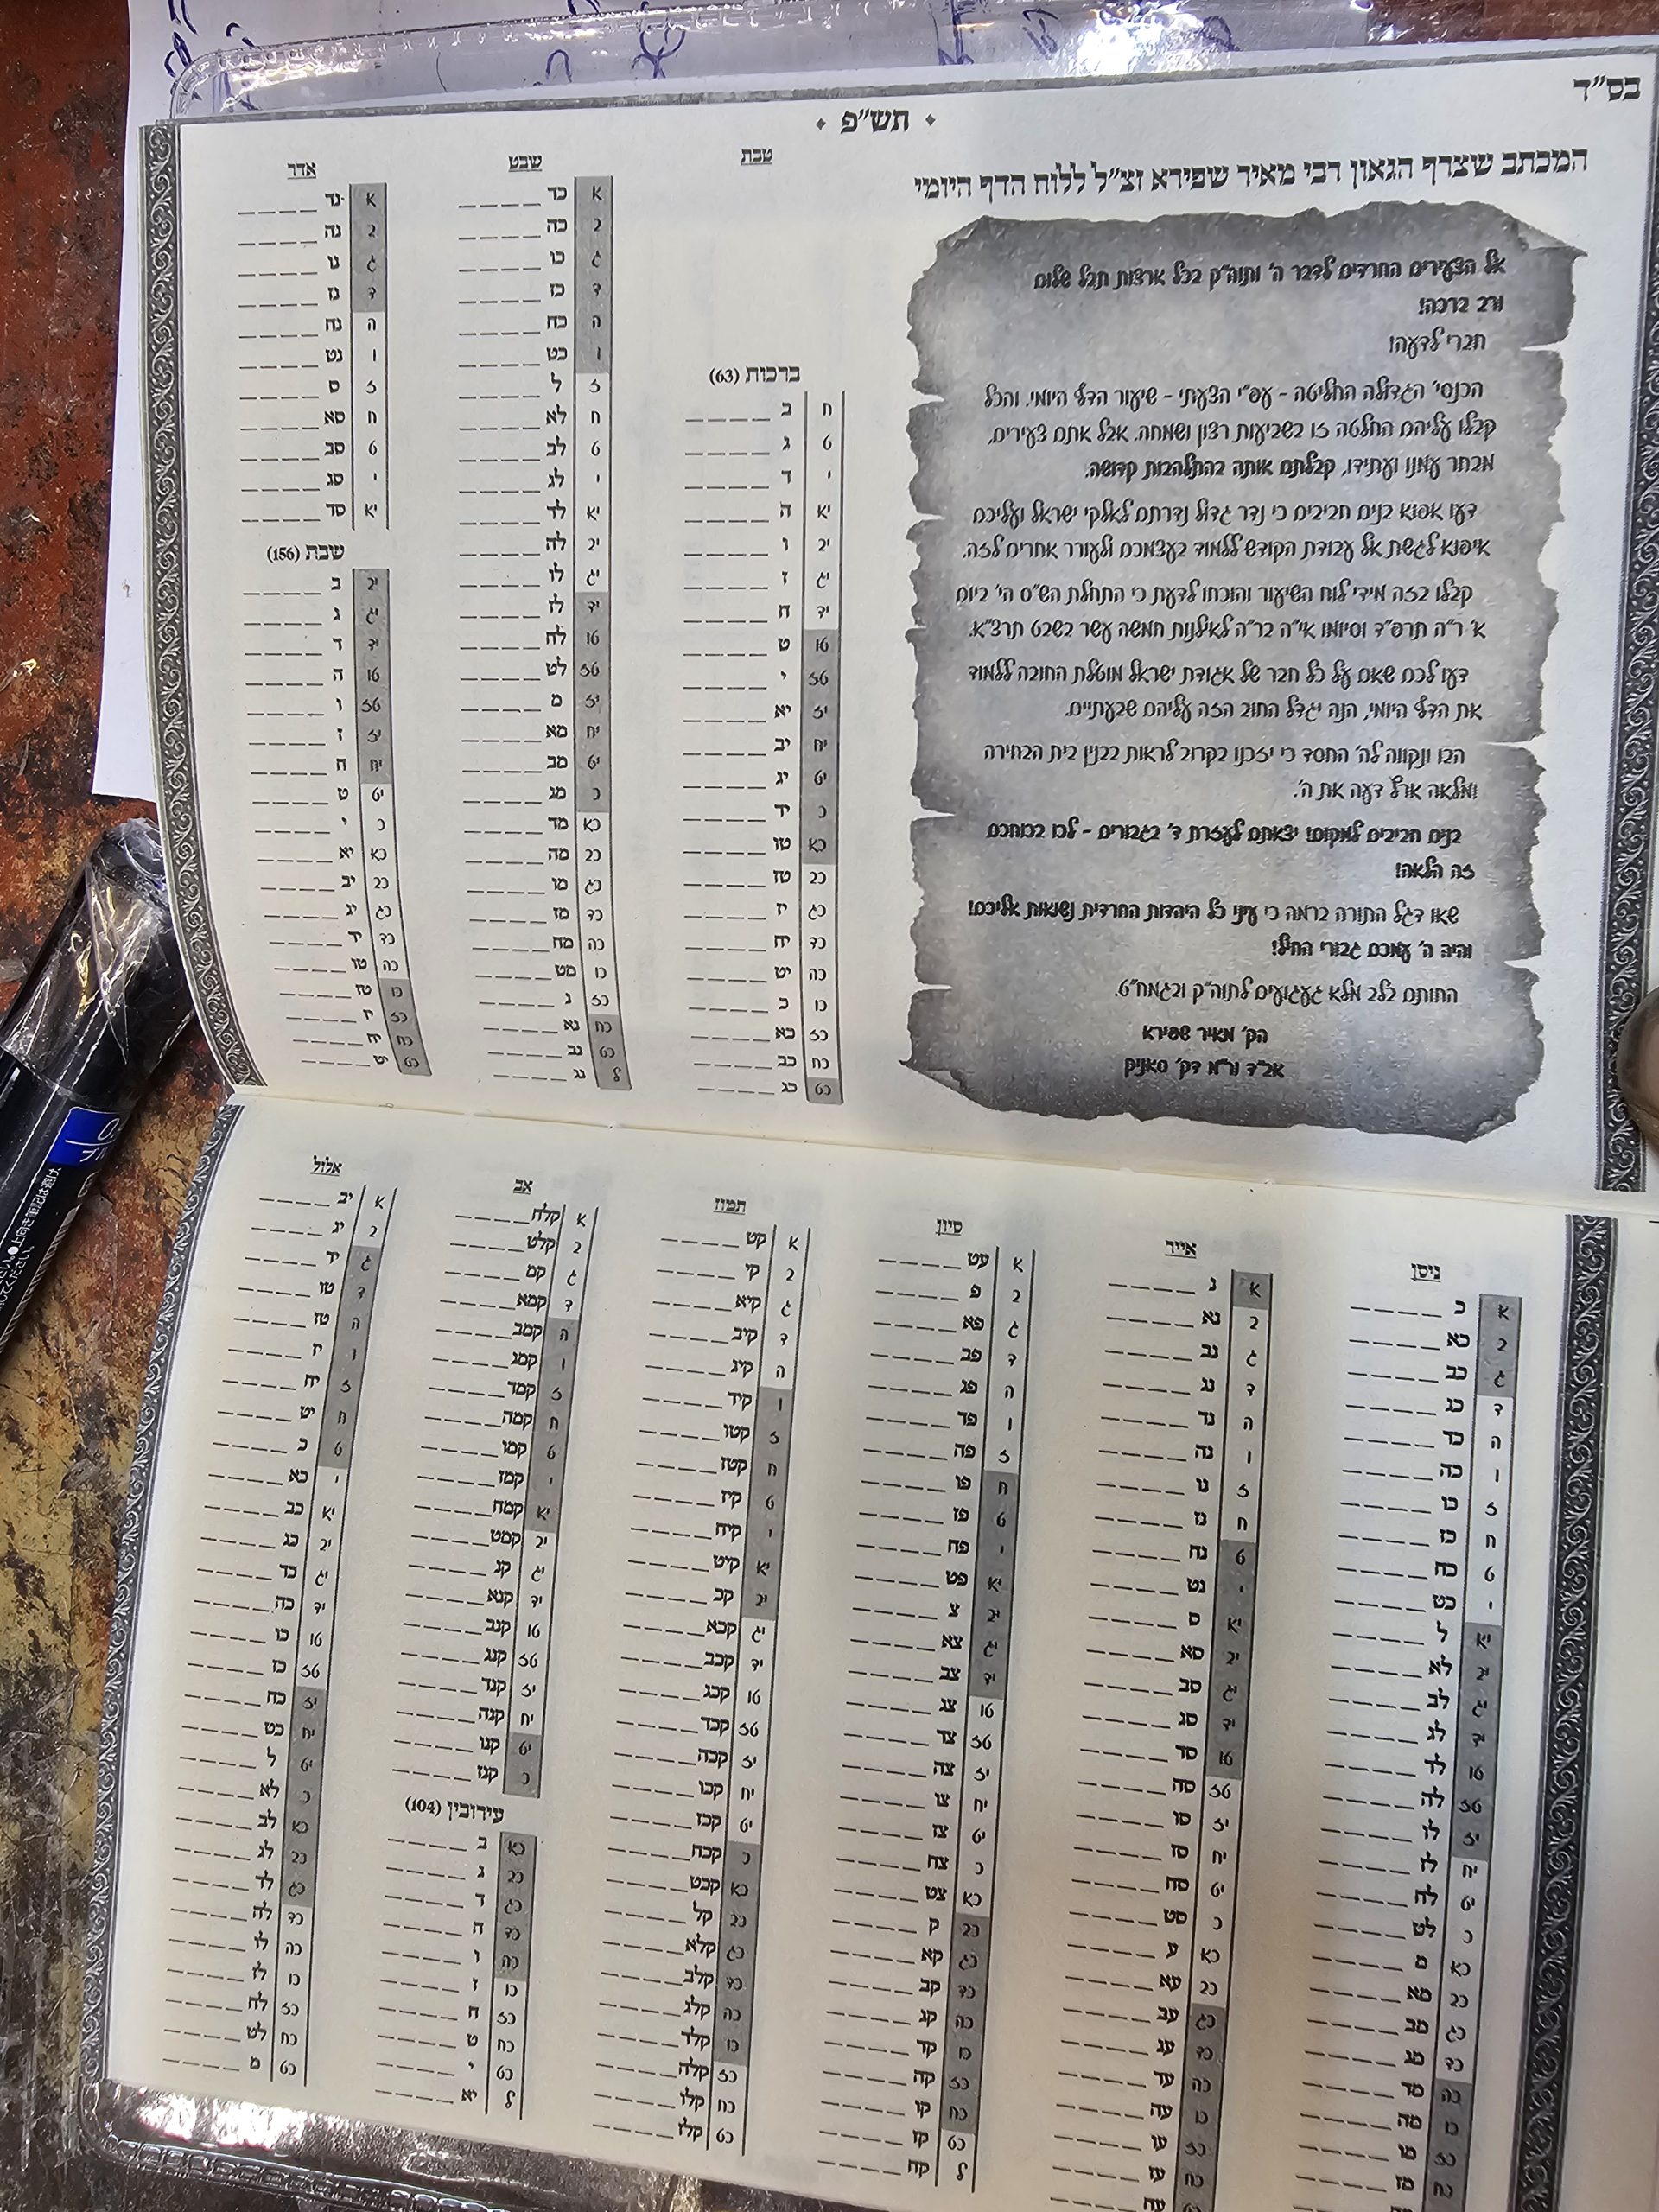 בס"ד
המכתב שצרף הגאון רבי מאיר שפירא זצ"ל ללוח הדף היומי
אל הצעירים החרדים לדבר ה' ותוה"ק בכל ארצות תבל שלום
ורב ברכה!
חברי לדעה!
הכנסי' הגדולה החליטה - עפ"י הצעתי - שיעור הדף היומי. והכל
קבלו עליהם החלטה זו בשביעות רצון ושמחה. אבל אתם צעירים,
מבחר עמנו ועתידו, קבלתם אותה בהתלהבות קדושה.
דעו אפוא בנים חביבים כי נדר גדול נדרתם לאלקי ישראל ועליכם
איפוא לגשת אל עבודת הקודש ללמוד בעצמכם ולעורר אחרים לזה.
קבלו בזה מידי לוח השיעור והוכחו לדעת כי התחלת הש"ס הי' ביום
א' ר"ה תרפ"ד וסיומו אי"ה בר"ה לאילנות חמשה עשר בשבט תרצ"א.
דעו לכם שאם על כל חבר של אגודת ישראל מוטלת החובה ללמוד
את הדף היומי, הנה יגדל החוב הזה עליהם שבעתיים.
הבו ונקווה לה' החסד כי יזכנו בקרוב לראות בבנין בית הבחירה
ומלאה ארץ דעה את ה'.
בנים חביבים למקום! יצאתם לעזרת ד' בגבורים - לכו בכוחכם
זה הלאה!
שאו דגל התורה ברמה כי עיני כל היהדות החרדית נשואות אליכם!
והיה ה' עמכם גבורי החיל!
החותם בלב מלא געגועים לתוה"ק ובגמח"ט.
הק' מאיר שפירא
אב"ד ור"מ דק' סאניק
תש"פ
טבת
ברכות (63)
ח ב
ט ג
י ד
יא ה
יב ו
יג ז
יד ח
טו ט
טז י
יז יא
יח יב
יט יג
כ יד
כא טו
כב טז
כג יז
כד יח
כה יט
כו כ
כז כא
כח כב
כט כג
שבט
א כד
ב כה
ג כו
ד כז
ה כח
ו כט
ז ל
ח לא
ט לב
י לג
יא לד
יב לה
יג לו
יד לז
טו לח
טז לט
יז מ
יח מא
יט מב
כ מג
כא מד
כב מה
כג מו
כד מז
כה מח
כו מט
כז נ
כח נא
כט נב
ל נג
אדר
א נד
ב נה
ג נו
ד נז
ה נח
ו נט
ז ס
ח סא
ט סב
י סג
יא סד
שבת (156)
יב ב
יג ג
יד ד
טו ה
טז ו
יז ז
יח ח
יט ט
כ י
כא יא
כב יב
כג יג
כד יד
כה טו
כו טז
כז יז
כח יח
כט יט
ניסן
א כ
ב כא
ג כב
ד כג
ה כד
ו כה
ז כו
ח כז
ט כח
י כט
יא ל
יב לא
יג לב
יד לג
טו לד
טז לה
יז לו
יח לז
יט לח
כ לט
כא מ
כב מא
כג מב
כד מג
כה מד
כו מה
כז מו
כח מז
אייר
א נ
ב נא
ג נב
ד נג
ה נד
ו נה
ז נו
ח נז
ט נח
י נט
יא ס
יב סא
יג סב
יד סג
טו סד
טז סה
יז סו
יח סז
יט סח
כ סט
כא ע
כב עא
כג עב
כד עג
כה עד
כו עה
כז עו
כח עז
כט עח
סיון
א עט
ב פ
ג פא
ד פב
ה פג
ו פד
ז פה
ח פו
ט פז
י פח
יא פט
יב צ
יג צא
יד צב
טו צג
טז צד
יז צה
יח צו
יט צז
כ צח
כא צט
כב ק
כג קא
כד קב
כה קג
כו קד
כז קה
כח קו
כט קז
ל קח
תמוז
א קט
ב קי
ג קיא
ד קיב
ה קיג
ו קיד
ז קטו
ח קטז
ט קיז
י קיח
יא קיט
יב קכ
יג קכא
יד קכב
טו קכג
טז קכד
יז קכה
יח קכו
יט קכז
כ קכח
כא קכט
כב קל
כג קלא
כד קלב
כה קלג
כו קלד
כז קלה
כח קלו
כט קלז
אב
א קלח
ב קלט
ג קמ
ד קמא
ה קמב
ו קמג
ז קמד
ח קמה
ט קמו
י קמז
יא קמח
יב קמט
יג קנ
יד קנא
טו קנב
טז קנג
יז קנד
יח קנה
יט קנו
כ קנז
עירובין (104)
כא ב
כב ג
כג ד
כד ה
כה ו
כו ז
כז ח
כח ט
כט י
ל יא
אלול
א יב
ב יג
ג יד
ד טו
ה טז
ו יז
ז יח
ח יט
ט כ
י כא
יא כב
יב כג
יג כד
יד כה
טו כו
טז כז
יז כח
יח כט
יט ל
כ לא
כא לב
כב לג
כג לד
כד לה
כה לו
כו לז
כז לח
כח לט
כט מ